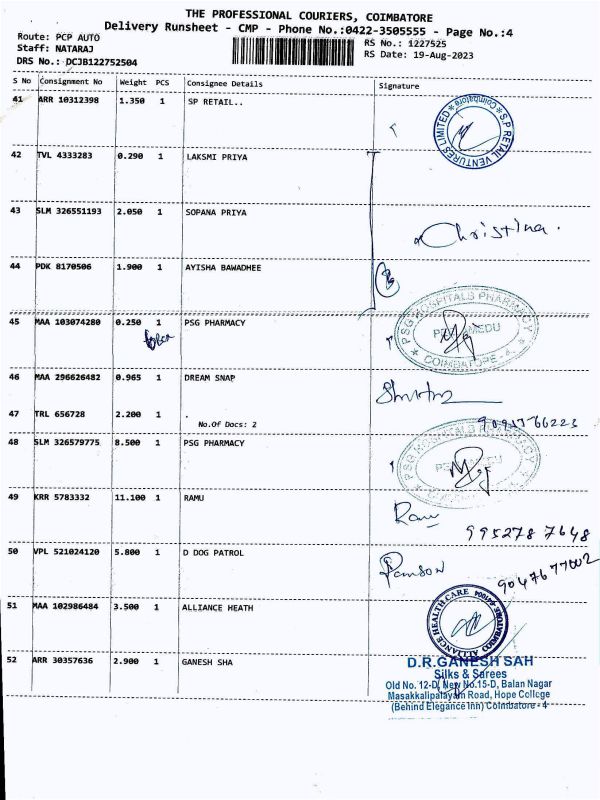 THE PROFESSIONAL COURIERS, COIMBATORE
Delivery Runsheet - CMP - Phone No.:0422-3505555 - Page No.:4
Route: PCP AUTO
Staff: NATARAJ
DRS No.: DCJB122752504
RS No.: 1227525
RS Date: 19-Aug-2023
S No Consignment No Weight PCS Consignee Details Signature
41 ARR 10312398 1.350 1 SP RETAIL..
S.P RETAIL VENTURES LIMITED * Coimbatore *
42 TVL 4333283 0.290 1 LAKSMI PRIYA
43 SLM 326551193 2.050 1 SOPANA PRIYA
Christina.
44 PDK 8170506 1.900 1 AYISHA BAWADHEE
45 MAA 103074280 0.250 1 PSG PHARMACY
PSG HOSPITALS PHARMACY
COIMBATORE - 4
46 MAA 296626482 0.965 1 DREAM SNAP
47 TRL 656728 2.200 1 .
No.Of Docs: 2
48 SLM 326579775 8.500 1 PSG PHARMACY
PSG HOSPITALS PHARMACY
COIMBATORE - 4
49 KRR 5783332 11.100 1 RAMU
Ramu
995278 7648
50 VPL 521024120 5.800 1 D DOG PATROL
9047677002
51 MAA 102986484 3.500 1 ALLIANCE HEATH
52 ARR 30357636 2.900 1 GANESH SHA
D.R.GANESH SAH
Silks & Sarees
Old No. 12-D, New No.15-D, Balan Nagar
Masakkalipalayam Road, Hope College
(Behind Elegance Inn) Coimbatore - 4